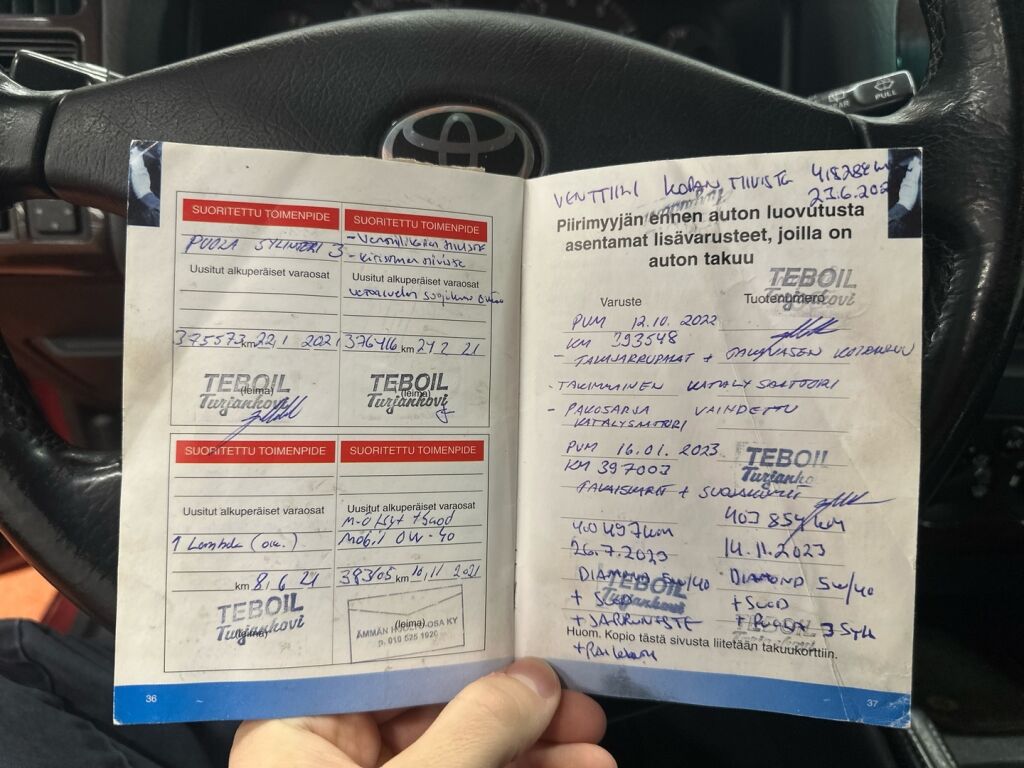 PULL
SUORITETTU TOIMENPIDE
PUOLA SYLINTERI 3
Uusitut alkuperäiset varaosat
375573 km 22.1 2021
TEBOIL
(leima)
Turjankovi
SUORITETTU TOIMENPIDE
- Kiristimen tiiviste
Uusitut alkuperäiset varaosat
376416 km 24 2 21
TEBOIL
(leima)
Turjankovi
SUORITETTU TOIMENPIDE
Uusitut alkuperäiset varaosat
1 Lambda
km 8, 6 21
TEBOIL
Turjankovi
(leima)
SUORITETTU TOIMENPIDE
Uusitut alkuperäiset varaosat
M-öljyt + suod
Mobil 0W-40
383105 km 10,11 2021
(leima)
ÄMMÄN HUOLTO-OSA KY
p. 010 525 1920
36
VENTTIILI KOPAN TIIVISTE 418288 km
23.6.202
Piirimyyjän ennen auton luovutusta
asentamat lisävarusteet, joilla on
auton takuu
TEBOIL
Turjankovi
Varuste Tuotenumero
PVM 12.10. 2022
KM 393548
- TAKAJARRUPALAT +
- TAKIMMAINEN KATALYSAATTORI
- PAKOSARJA VAIHDETTU
KATALYSAATTORI
PVM 16.01.2023
KM 397003
TEBOIL
Turjanko
TAKAISKARIT + SUOJAKUMIT
400497 km
26.7.2023
DIAMOND 5W/40
+ SUOD
+ JARRUNESTE
TEBOIL
Turjankovi
403 854 km
14.11.2023
DIAMOND 5W/40
+ SUOD
+ PUOLA 3 SYL
Huom. Kopio tästä sivusta liitetään takuukorttiin.
37